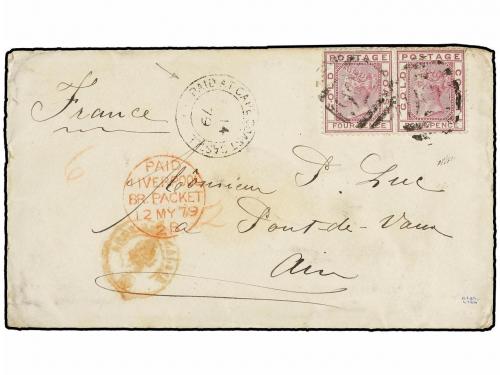 POSTAGE POSTAGE
GOLD GOLD
FOUR PENCE
France
PAID AT CAPE COAST CASTLE
14
79
6
PAID
LIVERPOOL
BR. PACKET
12 MY 79
2B
Monsieur P. Luc
a Pont-de-Vaux
Ain